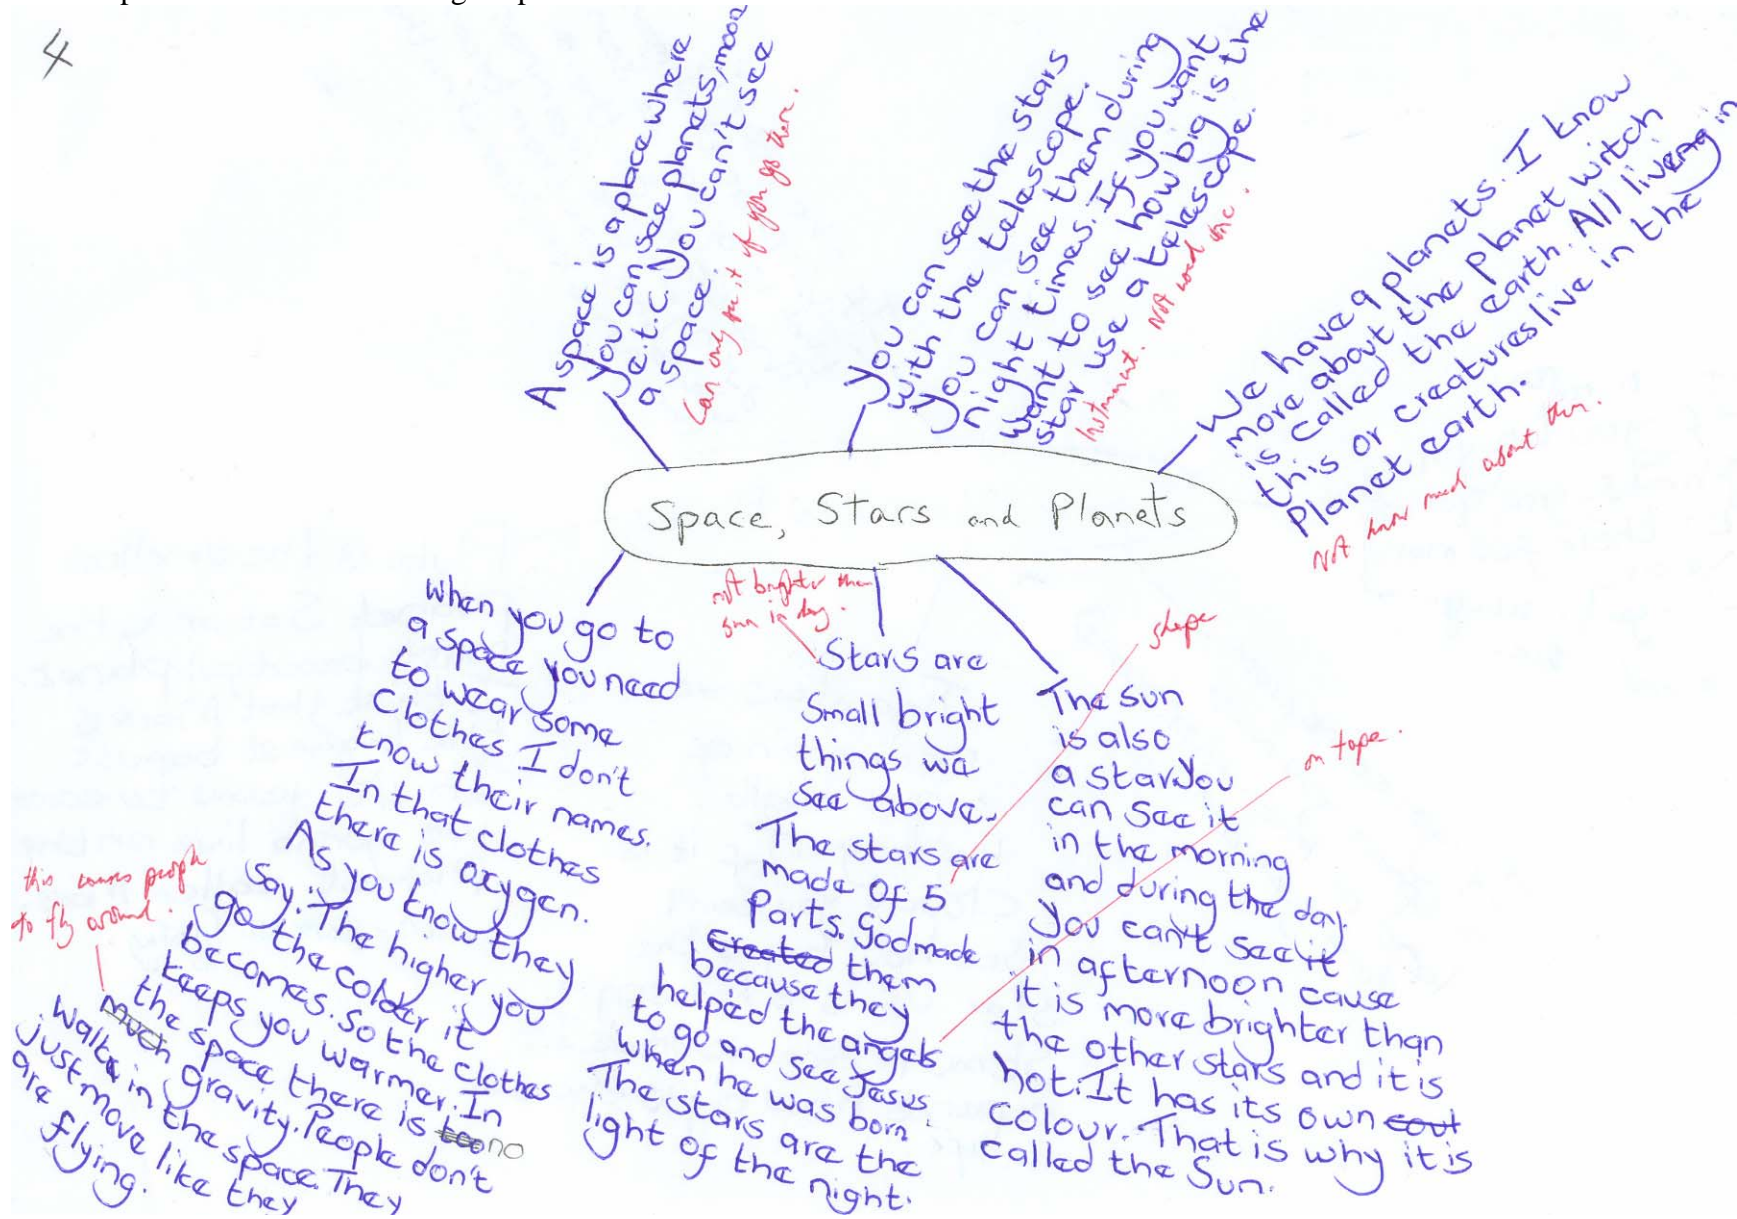 4
A space is a place where
you can see planets, moon
,e.t.c. You can't see
a space.
Can only see it if you go there.
You can see the stars
with the telescope.
You can see them during
night times. If you want
want to see how big is the
star use a telescope.
Instrument. Not used one.
We have 9 planets. I know
more about the planet witch
is called the earth. All living in
this or creatures live in the
Planet earth.
Not know much about them.
Space, Stars and Planets
when you go to
a space you need
to wear some
Clothes I don't
know their names.
In that clothes
there is oxygen.
As you know they
say. The higher you
go the colder it
becomes. So the clothes
keeps you warmer. In
the space there is too no
much gravity. People don't
walk in the space. They
just move like they
are flying.
this causes people
to fly around.
not brighter than
sun in day.
Stars are
Small bright
things we
see above.
The stars are
made of 5
Parts. God made
created them
because they
helped the angels
to go and see Jesus
when he was born.
The stars are the
light of the night.
shape
on tape.
The sun
is also
a star. You
can see it
in the morning
and during the day.
You can't see it
in afternoon cause
it is more brighter than
the other stars and it is
hot. It has its own
colour. That is why it is
called the Sun.